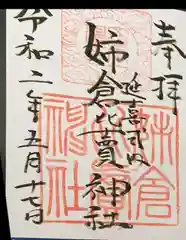 奉拝
延喜式内
姉倉比賣神社
令和二年五月十七日
姉倉
神社